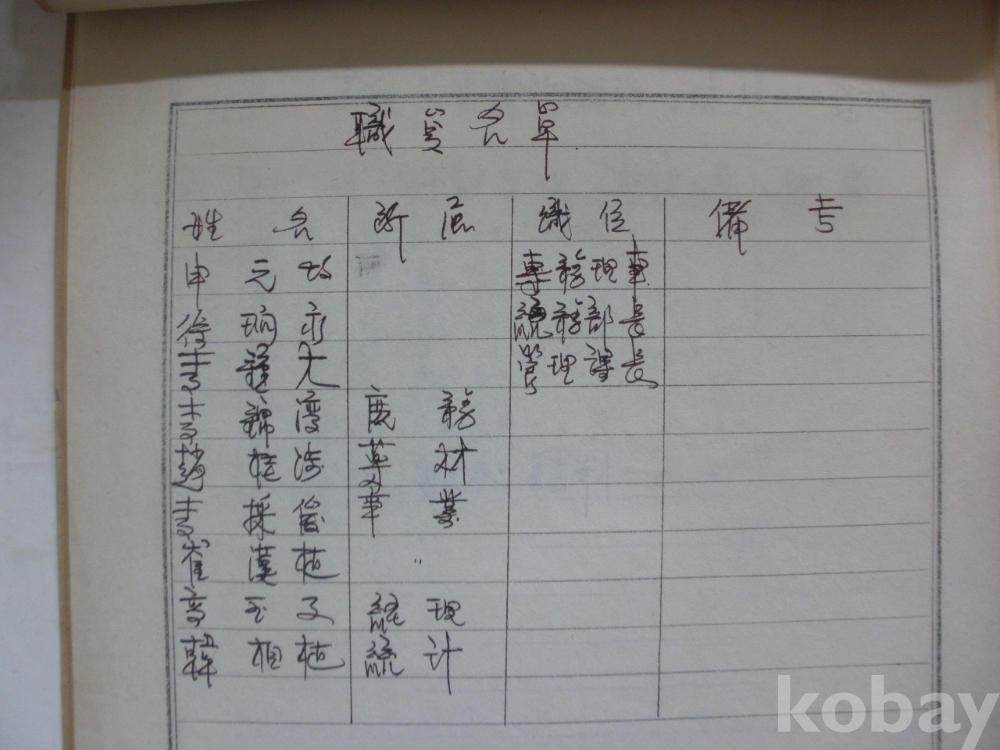 職員名單
姓名 所屬 職位 備考
申元 專務理事
徐炳永 總務部長
李種大 管理課長
李錦濟 庶務
趙桂 資材
李採俊 事業
崔漢植 〃
高玉子 經理
韓相植 統計
kobay